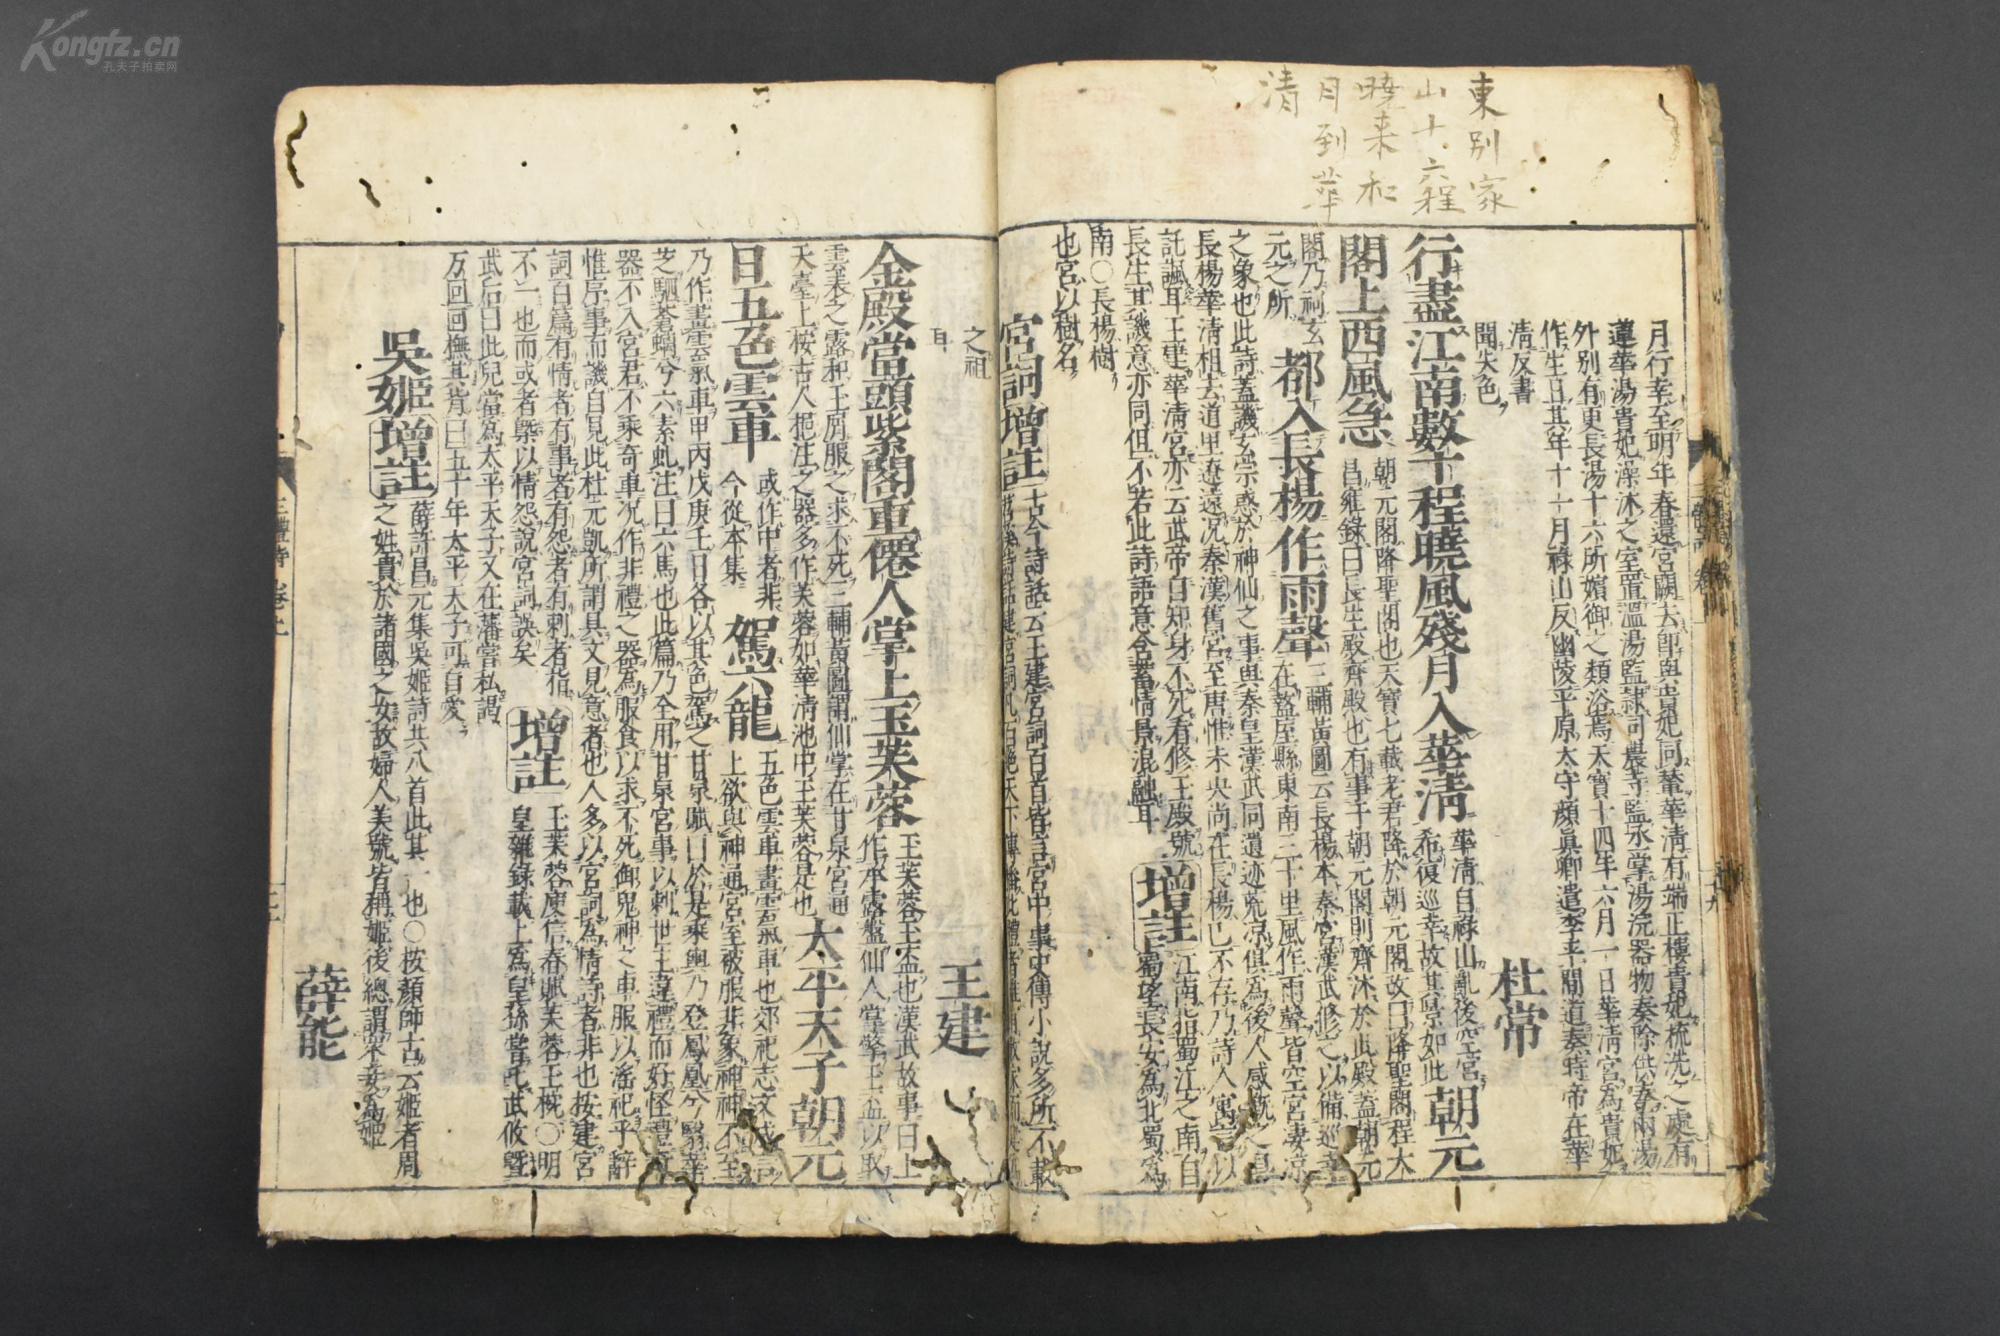 Kongfz.cn
孔夫子拍卖网
東別家
山十六程
曉来和
月到華
清
月行幸至明年春還宮闕去卽與貴妃同輦華清有端正樓貴妃梳洗之處有
蓮華湯貴妃澡沐之室置溫湯監隷司農寺監丞掌湯浣器物奏除供奉兩湯
外別有更長湯十六所嬪御之類浴焉天寶十四年六月一日華清宮為貴妃
作生日其年十一月祿山反幽陵平原太守顔眞卿遣李平間道奏時帝在華
清反書
聞失色
杜常
行盡江南數十程曉風殘月入華清 華清自祿山亂後空宮
希復巡幸故其景如此 朝元
閣上西風急 朝元閣降聖閣也天寶七載老君降於朝元閣故曰降聖閣程大
昌雍録曰長生殿齊殿也有事于朝元閣則齊沐於此殿蓋朝元
閣乃祠玄
元之所 都入長楊作雨聲 三輔黃圖云長楊本秦宮漢武修之以備巡幸
在盩厔縣東南三十里風作雨聲皆空宮凄凉
之象也此詩蓋譏玄宗惑於神仙之事與秦皇漢武同遺迹荒凉俱為後人感慨之具
長楊華清相去道里遼遠况秦漢舊宮至唐惟未央尚在長楊已不存乃詩人寓言以
託諷耳王建華清宮亦云武帝自知身不死看修玉殿號
長生其譏意亦同但不若此詩語意含蓄情景混融耳 增註 江南指蜀江之南自
蜀望長安為北蜀為
南○長楊樹
也宮以樹名
宮詞 增註 古今詩話云王建宮詞百首皆言宮中事史傳小說多所不載
之祖
耳
王建
金殿當頭紫閣重僊人掌上玉芙蓉 玉芙蓉玉盃也漢武故事曰上
作承露盤仙人掌擎玉盃以取
雲表之露和玉屑服之求不死三輔黃圖謂仙掌在甘泉宮通
天臺上桉古人挹注之器多作芙蓉如華清池中玉芙蓉是也 太平天子朝元
日五色雲車 或作中者非
今從本集 駕六龍 五色雲車畫雲氣車也郊祀志文成言
上欲與神通宮室被服非象神神不至
乃作畫雲氣車甲丙戊庚壬日各以其色駕之甘泉賦曰於是乗輿乃登鳳凰兮翳華
芝駟蒼螭兮六素虬注曰六馬也此篇乃全用甘泉宮事以刺世主違禮而好怪禮奇
器不入宮君不乘奇車况作非禮之器為服食以求不死御鬼神之車服以淫祀乎辭
惟序事而譏自見此杜元凱所謂具文見意者也人多以宮詞為情詩者非也按建宮
詞百篇有情者有事者有怨者有刺者指
不一也而或者槩以情怨說宮詞誤矣 增註 玉芙蓉庾信春賦芙蓉玉椀○明
皇雜録載上為皇孫嘗叱武攸曁
武后曰此兒當為太平天子又在藩嘗私謁
万回回撫其背曰五十年太平天子可自愛
吳姬 增註 薛許昌元集吳姬詩共八首此其一也○桉顔師古云姬者周
之姓貴於諸國之女故婦人美號皆稱姬後總謂衆妾為姬
薛能
三體詩 卷上